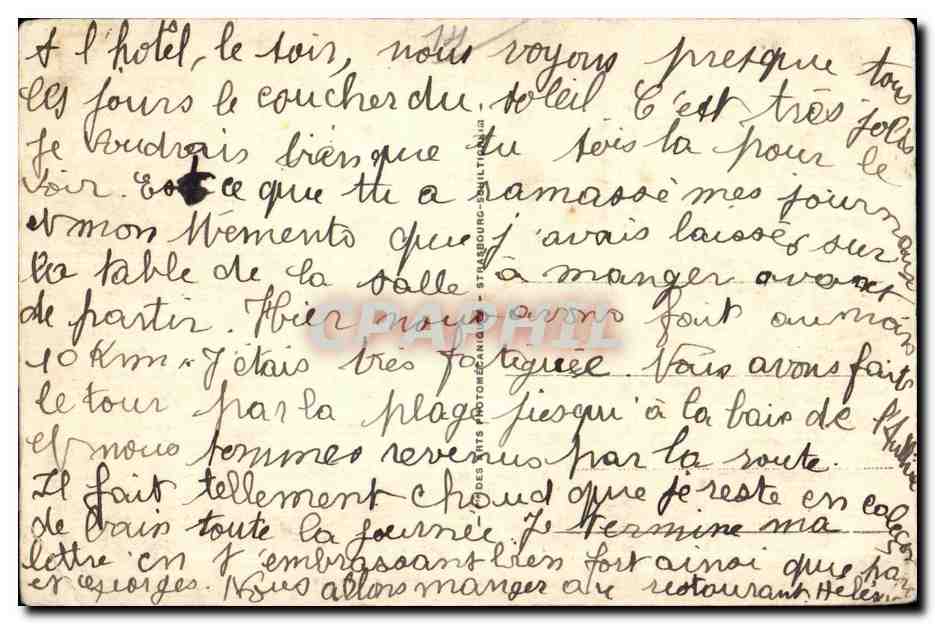 A l'hôtel, le soir, nous voyons presque tous
les jours le coucher du soleil C'est très joli
Je voudrais bien que tu sois la pour le
voir. Est ce que tu a ramassé mes journaux
et mon Mémento que j'avais laissés sur
la table de la salle à manger avant
de partir. Hier nous avons fait au moins
10 Km. J'étais très fatiguée. Nous avons fait
le tour par la plage jusqu'à la baie de l'Authie
et nous sommes revenus par la route.
Il fait tellement chaud que je reste en caleçon
de bain toute la journée. Je termine ma
lettre en t'embrassant bien fort ainsi que
et Georges. Nous allons manger au restaurant. Hélène
DES ARTS PHOTOMÉCANIQUES - STRASBOURG-SCHILTIGHEIM
CPAPHIL